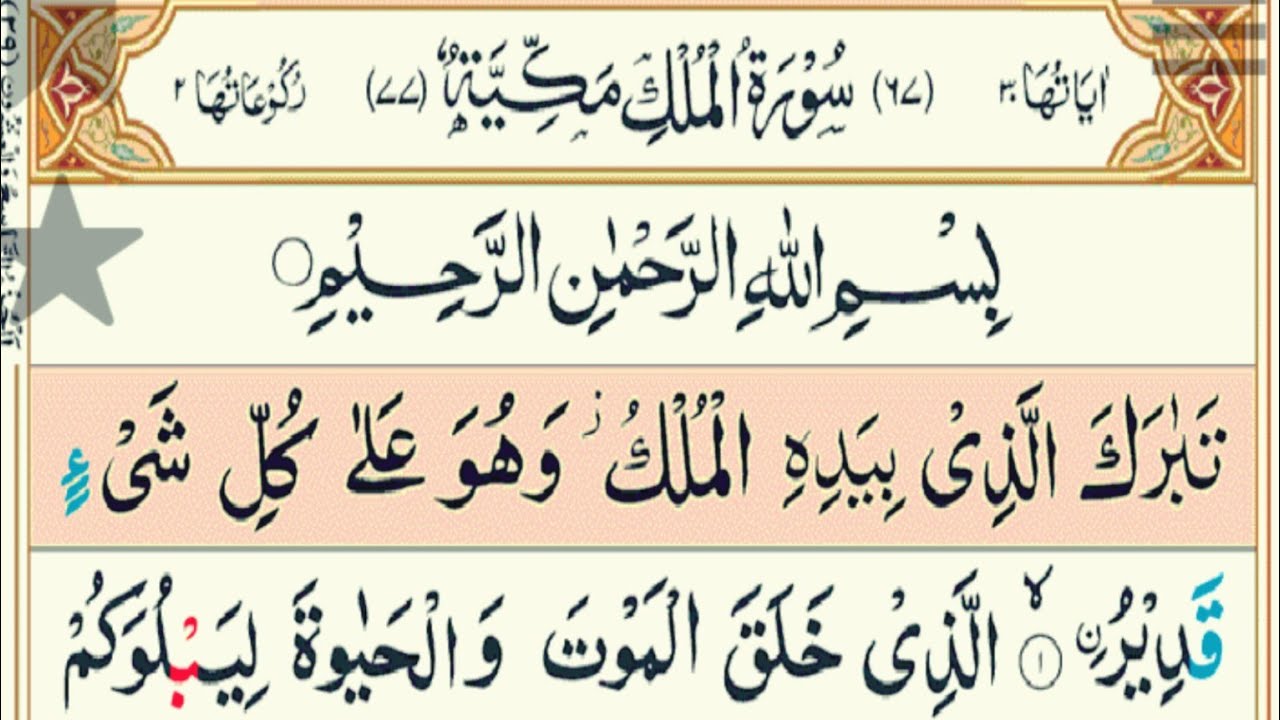 اٰيَاتُهَا ٣٠ (٦٧) سُوْرَةُ الْمُلْكِ مَكِّيَّةٌ (٧٧) رُكُوْعَاتُهَا ٢
بِسْمِ اللّٰهِ الرَّحْمٰنِ الرَّحِيْمِ
تَبٰرَكَ الَّذِىْ بِيَدِهِ الْمُلْكُ ز وَهُوَ عَلٰى كُلِّ شَىْءٍ
قَدِيْرُ نِ ۙ ١ الَّذِىْ خَلَقَ الْمَوْتَ وَالْحَيٰوةَ لِيَبْلُوَكُمْ